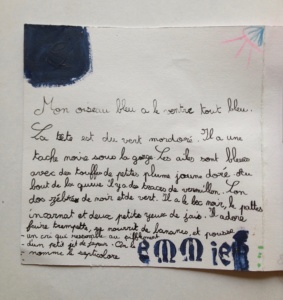 Mon oiseau bleu a le ventre tout bleu.
La tête est du vert mordoré. Il a une
tache noire sous la gorge. Les ailes sont bleues
avec des touffes de petites plumes jaune doré. Au
bout de la queue il y a des traces de vermillon. Son
dos zébrés de noir et de vert. Il a le bec noir, les pattes
incarnat et deux petits yeux de jais. Il adore
faire trempette, se nourrit de bananes, et pousse
un cri qui ressemble au sifflement
d'un petit jet de vapeur. On le
nomme le septicolore
EMMIE